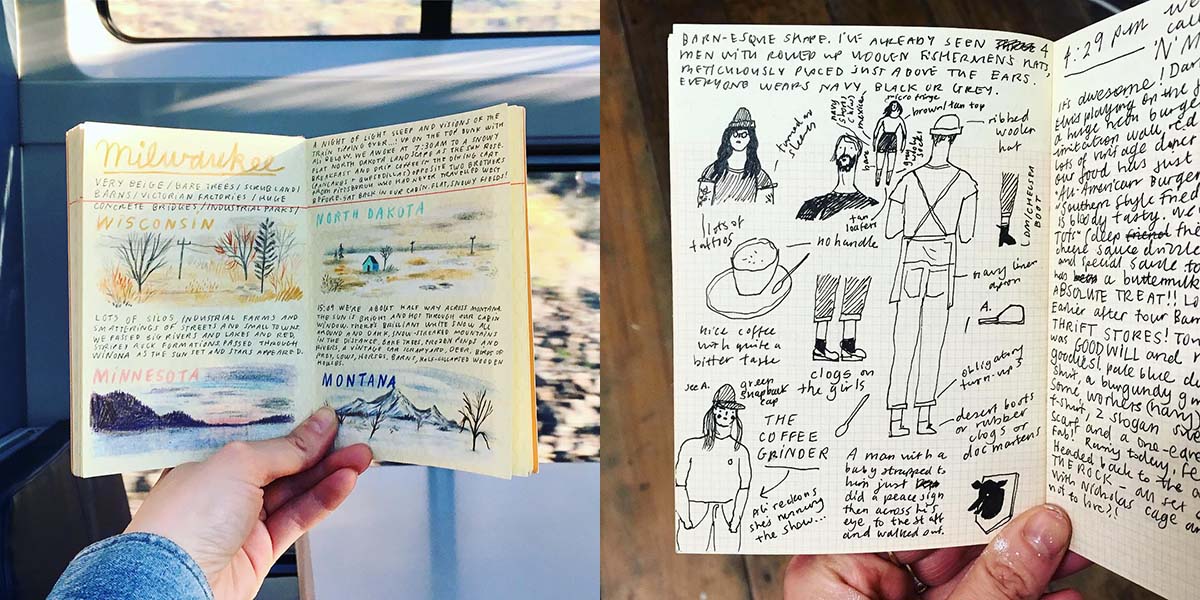 Milwaukee
VERY BEIGE / BARE TREES / SCRUB LAND /
BARNS / VICTORIAN FACTORIES / HUGE
CONCRETE BRIDGES / INDUSTRIAL PARKS /
WISCONSIN
LOTS OF SILOS, INDUSTRIAL FARMS AND
SMATTERINGS OF STREETS AND SMALL TOWNS.
WE PASSED BIG RIVERS AND LAKES AND RED
STRIPEY ROCK FORMATIONS. PASSED THROUGH
WINONA AS THE SUN SET AND STARS APPEARED.
MINNESOTA
A NIGHT OF LIGHT SLEEP AND VISIONS OF THE
TRAIN TIPPING OVER... I'M ON THE TOP BUNK WITH
ALI BELOW. WE AWOKE AT 7:30AM TO A SNOWY
FLAT NORTH DAKOTA LANDSCAPE AS THE SUN ROSE.
BREAKFAST AND DRIP COFFEE IN THE DINING CART
(PANCAKES + QUESADILLAS) OPPOSITE TWO BROTHERS
FROM PITTSBURGH WHO HAD NEVER TRAVELLED WEST
BEFORE. SAT BACK IN OUR CABIN. FLAT, SNOWY FIELDS!
NORTH DAKOTA
15:09 WE'RE ABOUT HALF WAY ACROSS MONTANA
THE SUN IS BRIGHT AND HOT THROUGH OUR CABIN
WINDOW. THERE'S BRILLIANT WHITE SNOW ALL
AROUND AND DARK, SNOW-STREAKED MOUNTAINS
IN THE DISTANCE. BARE TREES, FROZEN PONDS AND
RIVERS, A VINTAGE CAR SCRAPYARD, DEER, BIRDS OF
PREY, COWS, HORSES, BARNS, HALF-COLLAPSED WOODEN
HOUSES.
MONTANA
BARN-ESQUE SHAPE. I'VE ALREADY SEEN 4
MEN WITH ROLLED UP WOOLEN FISHERMENS HATS,
METICULOUSLY PLACED JUST ABOVE THE EARS.
EVERYONE WEARS NAVY BLACK OR GREY.
micro fringe
brown/tan top
ribbed
woolen
hat
lots of
tattoos
tan
loafers
no handle
navy linen
apron
nice coffee
with quite a
bitter taste
clogs on
the girls
A.
obligatory
turn-ups
see A.
green
snapback
cap
THE
COFFEE
GRINDER
desert boots
or rubber
clogs or
doc martens
Ali reckons
she's running
the show...
A man with a
baby strapped to
him just
did a peace sign
then across his
eye to the staff
and walked out.
4.29 pm
call
'N' M
It's awesome! Dar
Elvis playing on the
a huge neon burge
imitation wall, red
lots of vintage diner
our food has just
All-American Burger
Southern Style Fried
is bloody tasty. We
Tots (deep the
cheese sauce drizzle
and special sauce to
has a buttermilk
ABSOLUTE TREAT!! L
Earlier after tour Bar
THRIFT STORES! Tow
was GOODWILL and
goodies! pale blue d
Shirt, a burgundy
Some workers
t-shirt, 2 slogan
Scarf and a one-eared
Fab! Rainy today,
Headed back to the
THE ROCK – an set
with Nicholas Cage an
not to live)!